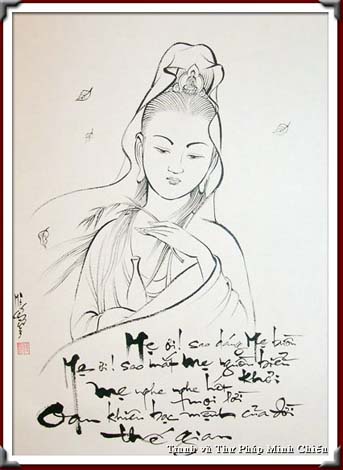 Mẹ ơi! sao dáng Mẹ buồn
Mẹ ơi! sao mắt Mẹ nguồn biển khơi
Mẹ nghe nghe hết mọi lời
Oan khiên bạc mệnh của đời
thế gian
Tranh và Thư Pháp Minh Chiến